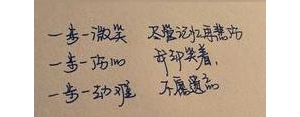 一步一微笑 尽管记忆再悲伤
一步一伤心 我却笑着,
一步一劫难 不愿遗忘